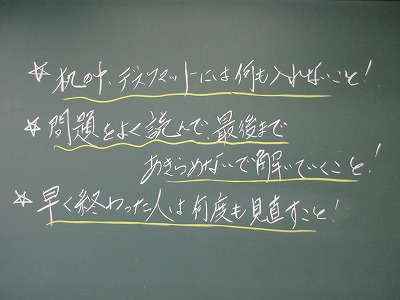 ☆机の中、デスクマットには何も入れないこと!
☆問題をよく読んで、最後まで
あきらめないで解いていくこと!
☆早く終わった人は何度も見直すこと!